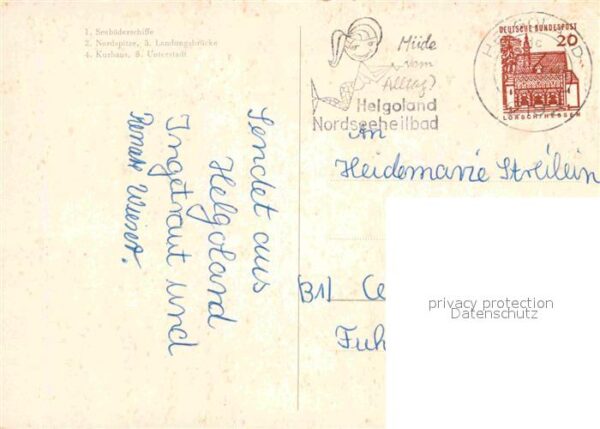 1. Seebäderschiffe
2. Nordspitze, 3. Landungsbrücke
4. Kurhaus, 5. Unterstadt
Müde
vom
Alltag?
Helgoland
Nordseeheilbad
DEUTSCHE BUNDESPOST
20
LORSCH/HESSEN
Sendet aus
Helgoland
Ingetraut und
Renate Wieser.
An
Heidemarie Streilein
(31) Ce
Fuh
privacy protection
Datenschutz